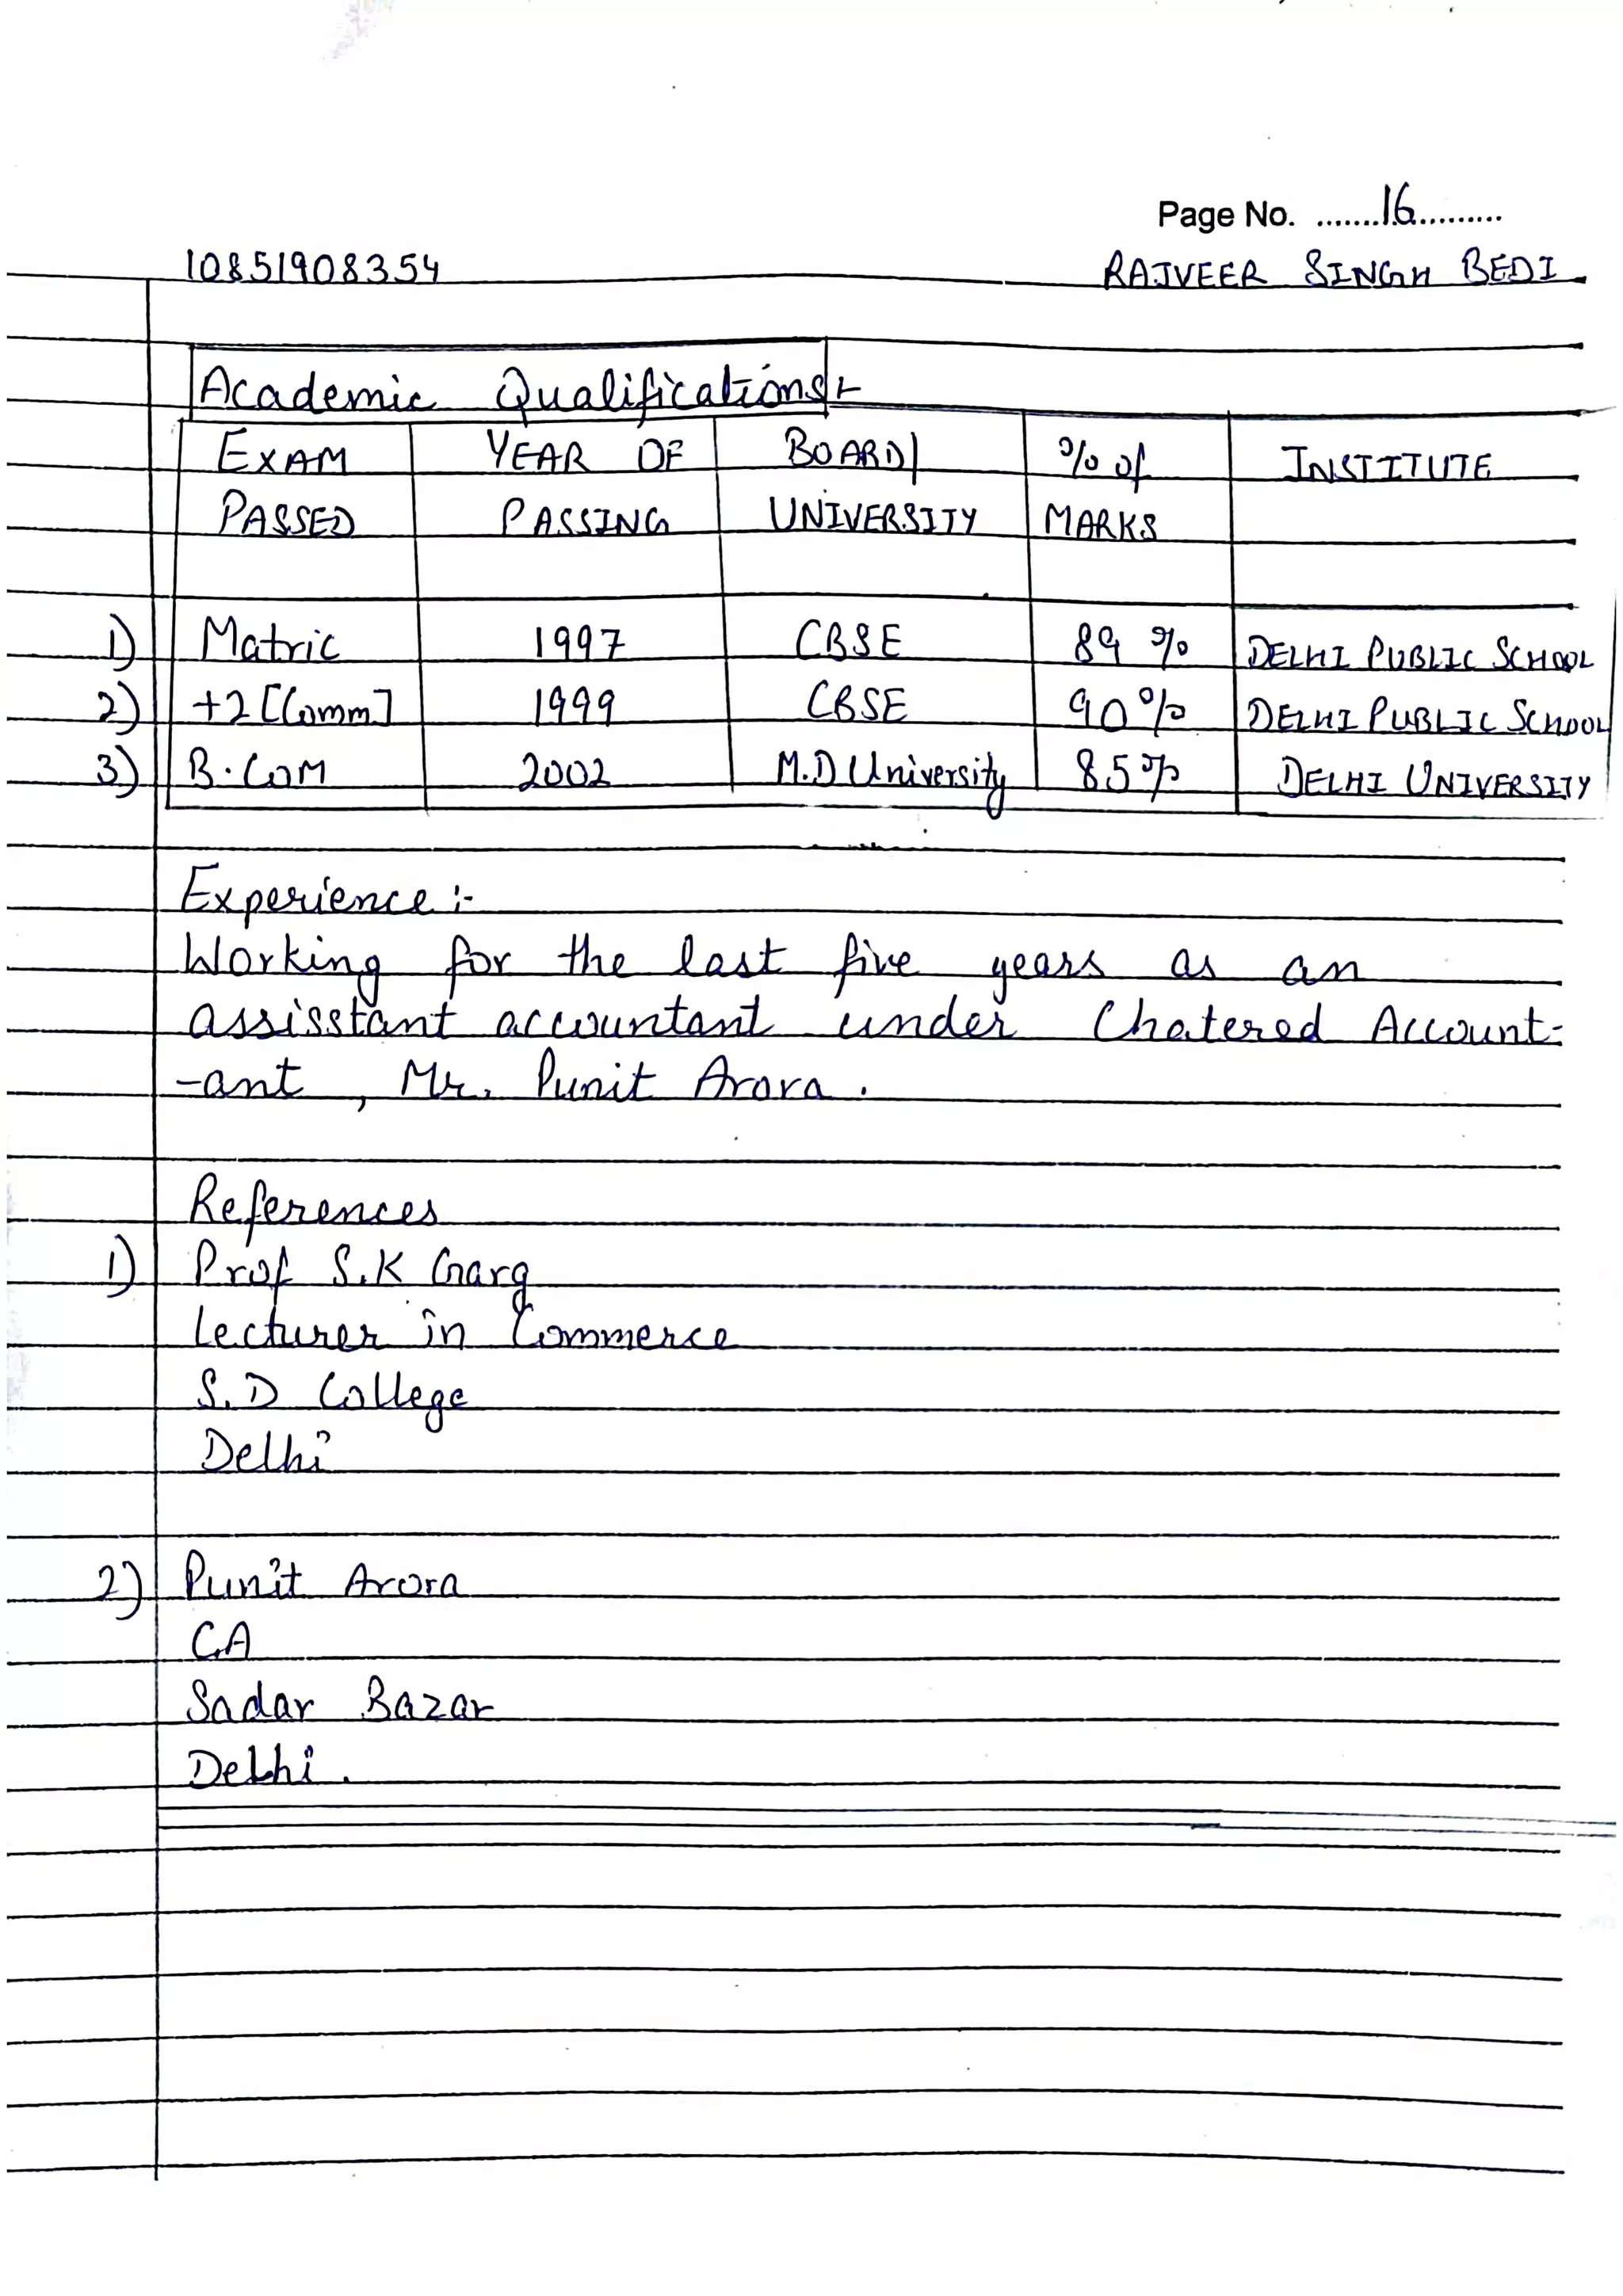 Page No. ........16..........
10851908354 RAJVEER SINGH BEDI
Academic Qualifications:-
EXAM YEAR OF BOARD/ % of INSTITUTE
PASSED PASSING UNIVERSITY MARKS
1) Matric 1997 CBSE 89 % DELHI PUBLIC SCHOOL
2) +2 [Comm] 1999 CBSE 90% DELHI PUBLIC SCHOOL
3) B.COM 2002 M.D University 85% DELHI UNIVERSITY
Experience :-
Working for the last five years as an
assisstant accountant under Chatered Account-
-ant , Mr. Punit Arora .
References
1) Prof S.K Garg
Lecturer in Commerce
S.D College
Delhi
2) Punit Arora
CA
Sadar Bazar
Delhi .